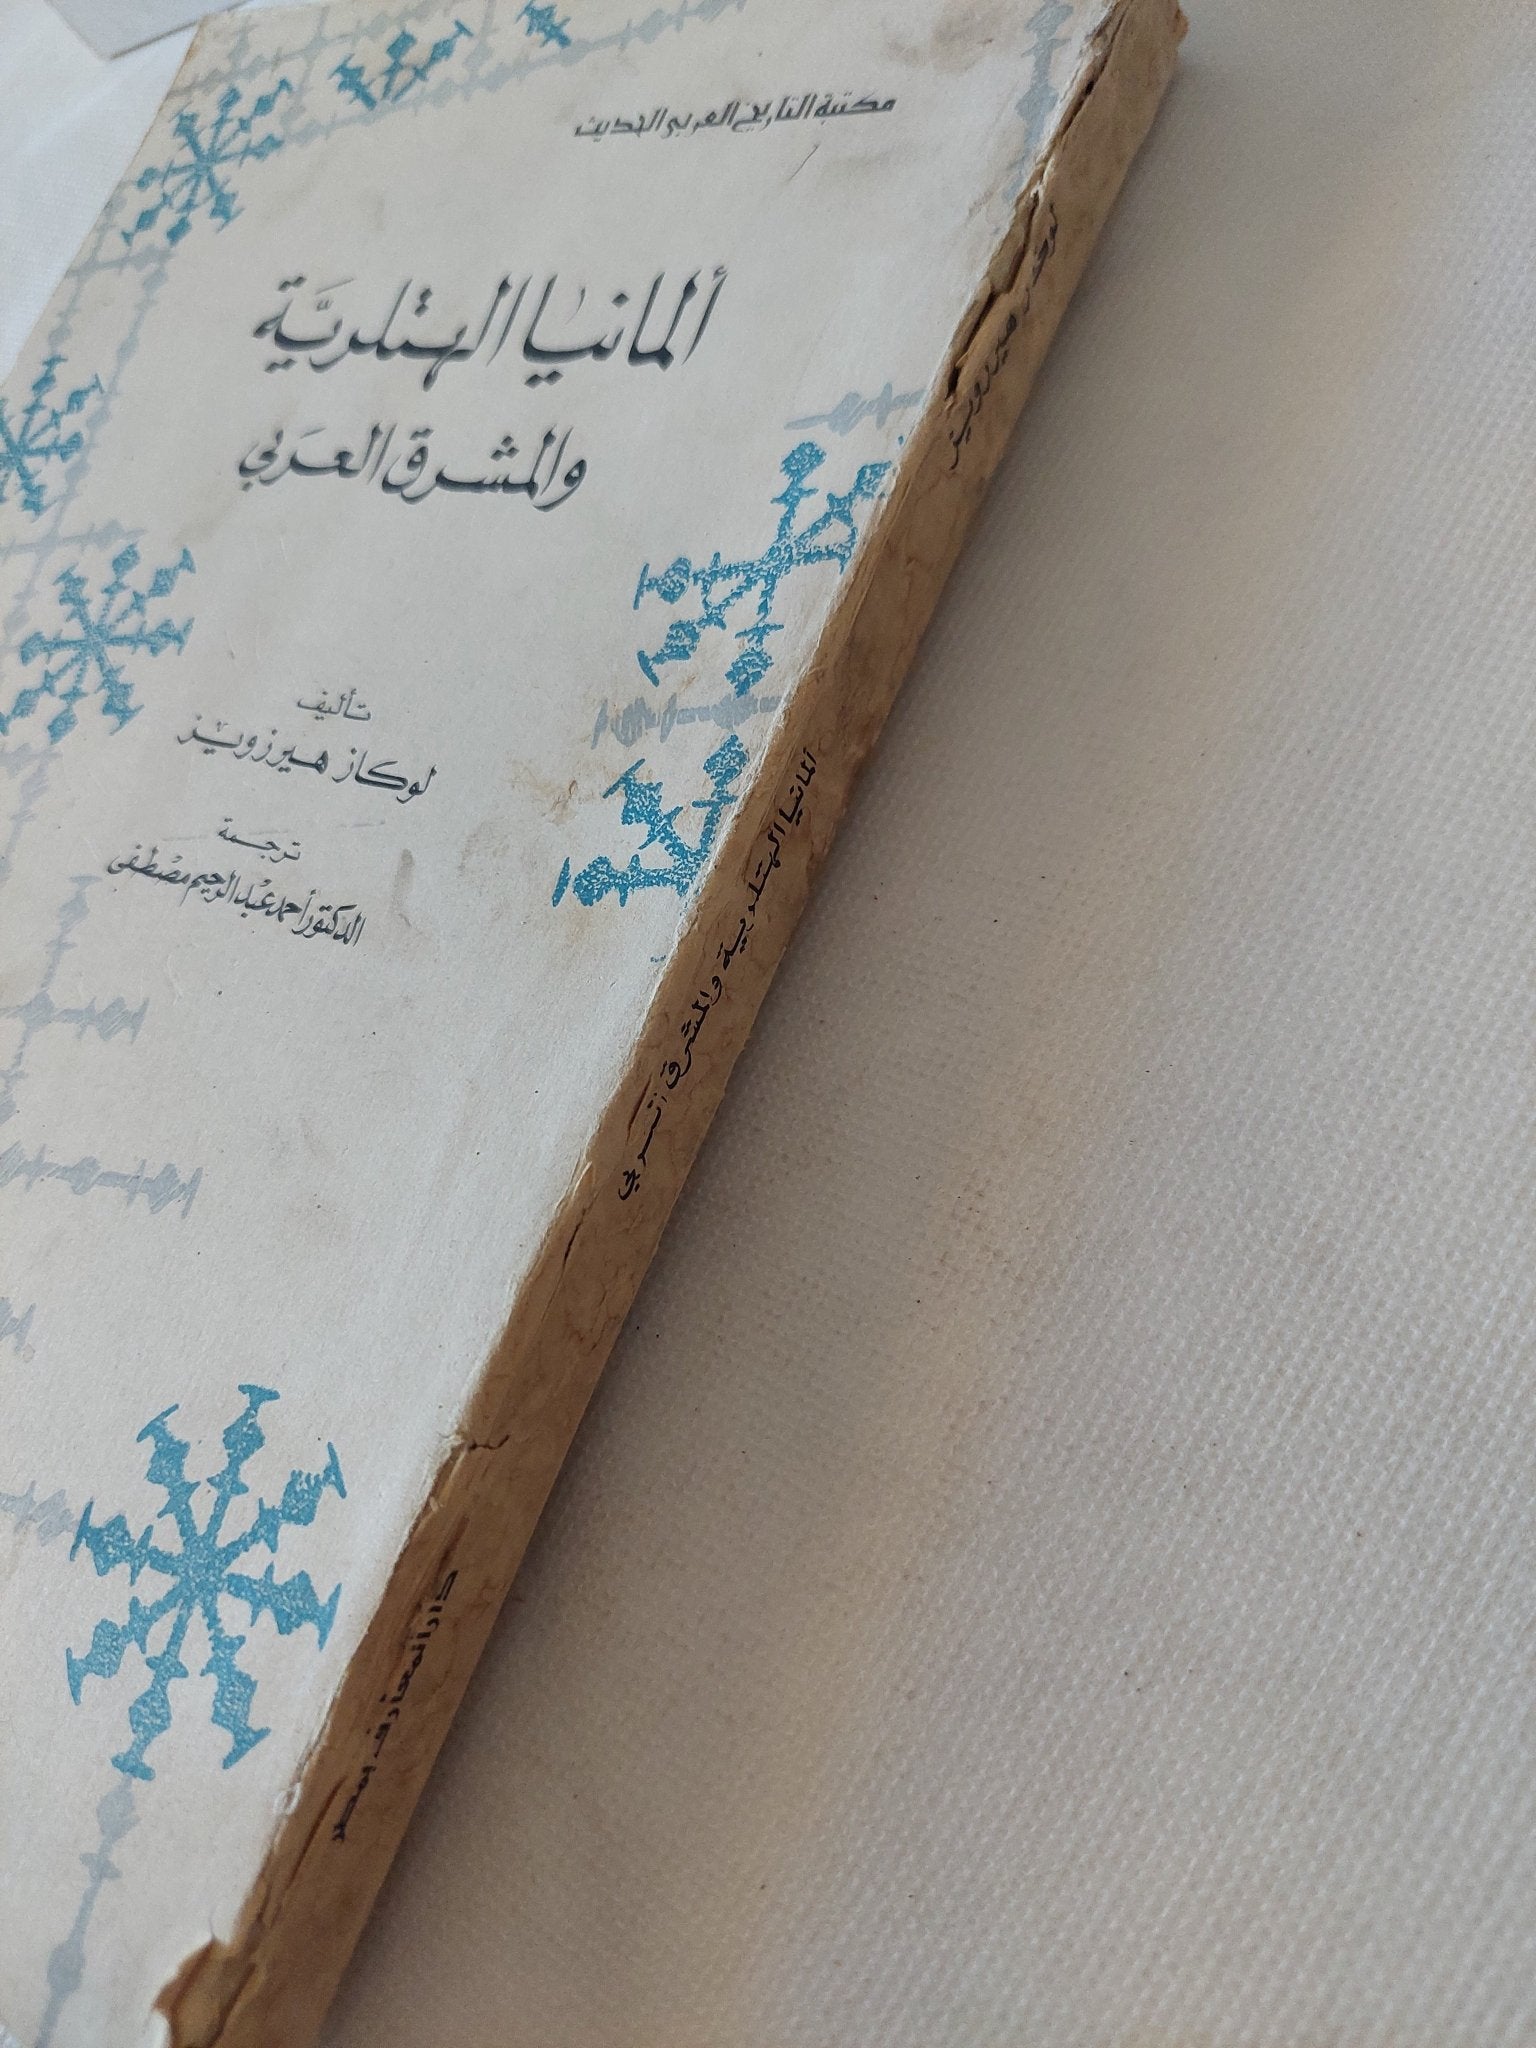 مكتبة التاريخ العربي الحديث
ألمانيا الهتلريَّة
والمشرق العَربي
تأليف
لوكاز هيرزويز
ترجمة
الدكتور أحمد عبْد الرحيم مصْطفى
لوكاز هيرزويز
ألمانيا الهتلرية والمشرق العربي
دار المعارف بمصر